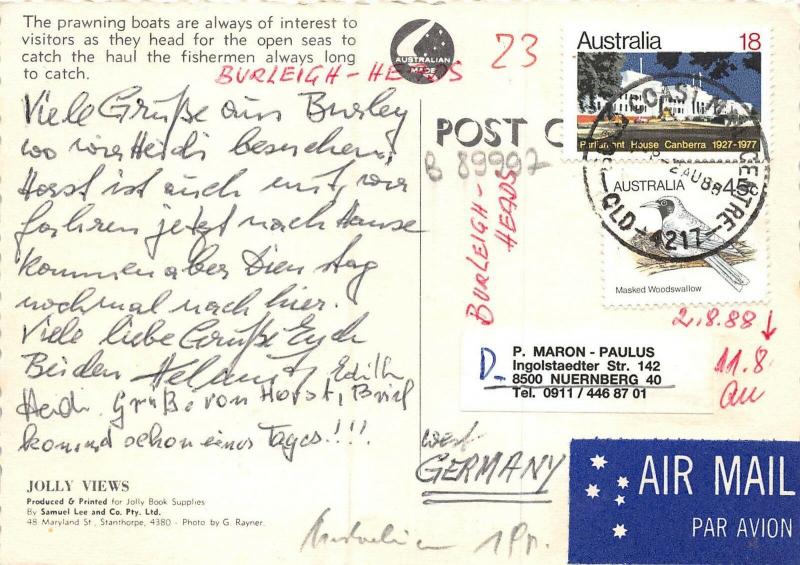 The prawning boats are always of interest to
visitors as they head for the open seas to
catch the haul the fishermen always long
to catch.
BURLEIGH-HEADS
AUSTRALIAN
MADE
23
Viele Grüße aus Burley
wo wir Heidi besuchen,
Horst ist auch mit, wir
fahren jetzt nach Hause
kommen aber Dienstag
nochmal nach hier.
Viele liebe Grüße Euch
Beiden Helmut Edith
Heidi. Grüße von Horst, Brief
kommt schon eines Tages!!!
JOLLY VIEWS
Produced & Printed for Jolly Book Supplies
By Samuel Lee and Co. Pty. Ltd.
48 Maryland St., Stanthorpe, 4380 - Photo by G. Rayner.
POST C
B 89997
BURLEIGH-
HEADS
Australia 18
Parliament House Canberra 1927-1977
AUSTRALIA 45c
Masked Woodswallow
GOLD COAST MAIL CENTRE
2 AUG 88
QLD 4217
2.8.88
11.8.
an
D-
P. MARON - PAULUS
Ingolstaedter Str. 142
8500 NUERNBERG 40
Tel. 0911 / 446 87 01
West
GERMANY
AIR MAIL
PAR AVION
Australien